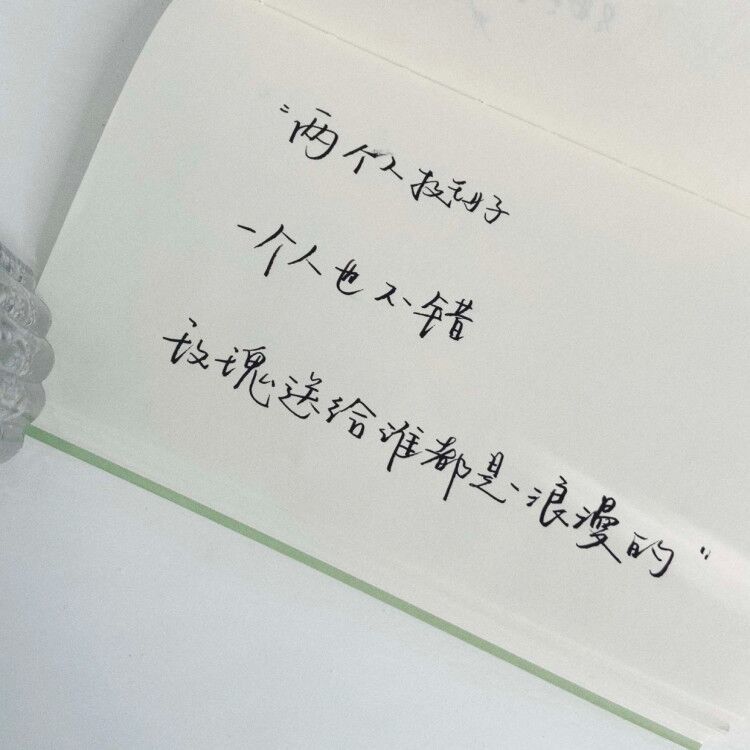 “两个人挺好
一个人也不错
玫瑰送给谁都是浪漫的”